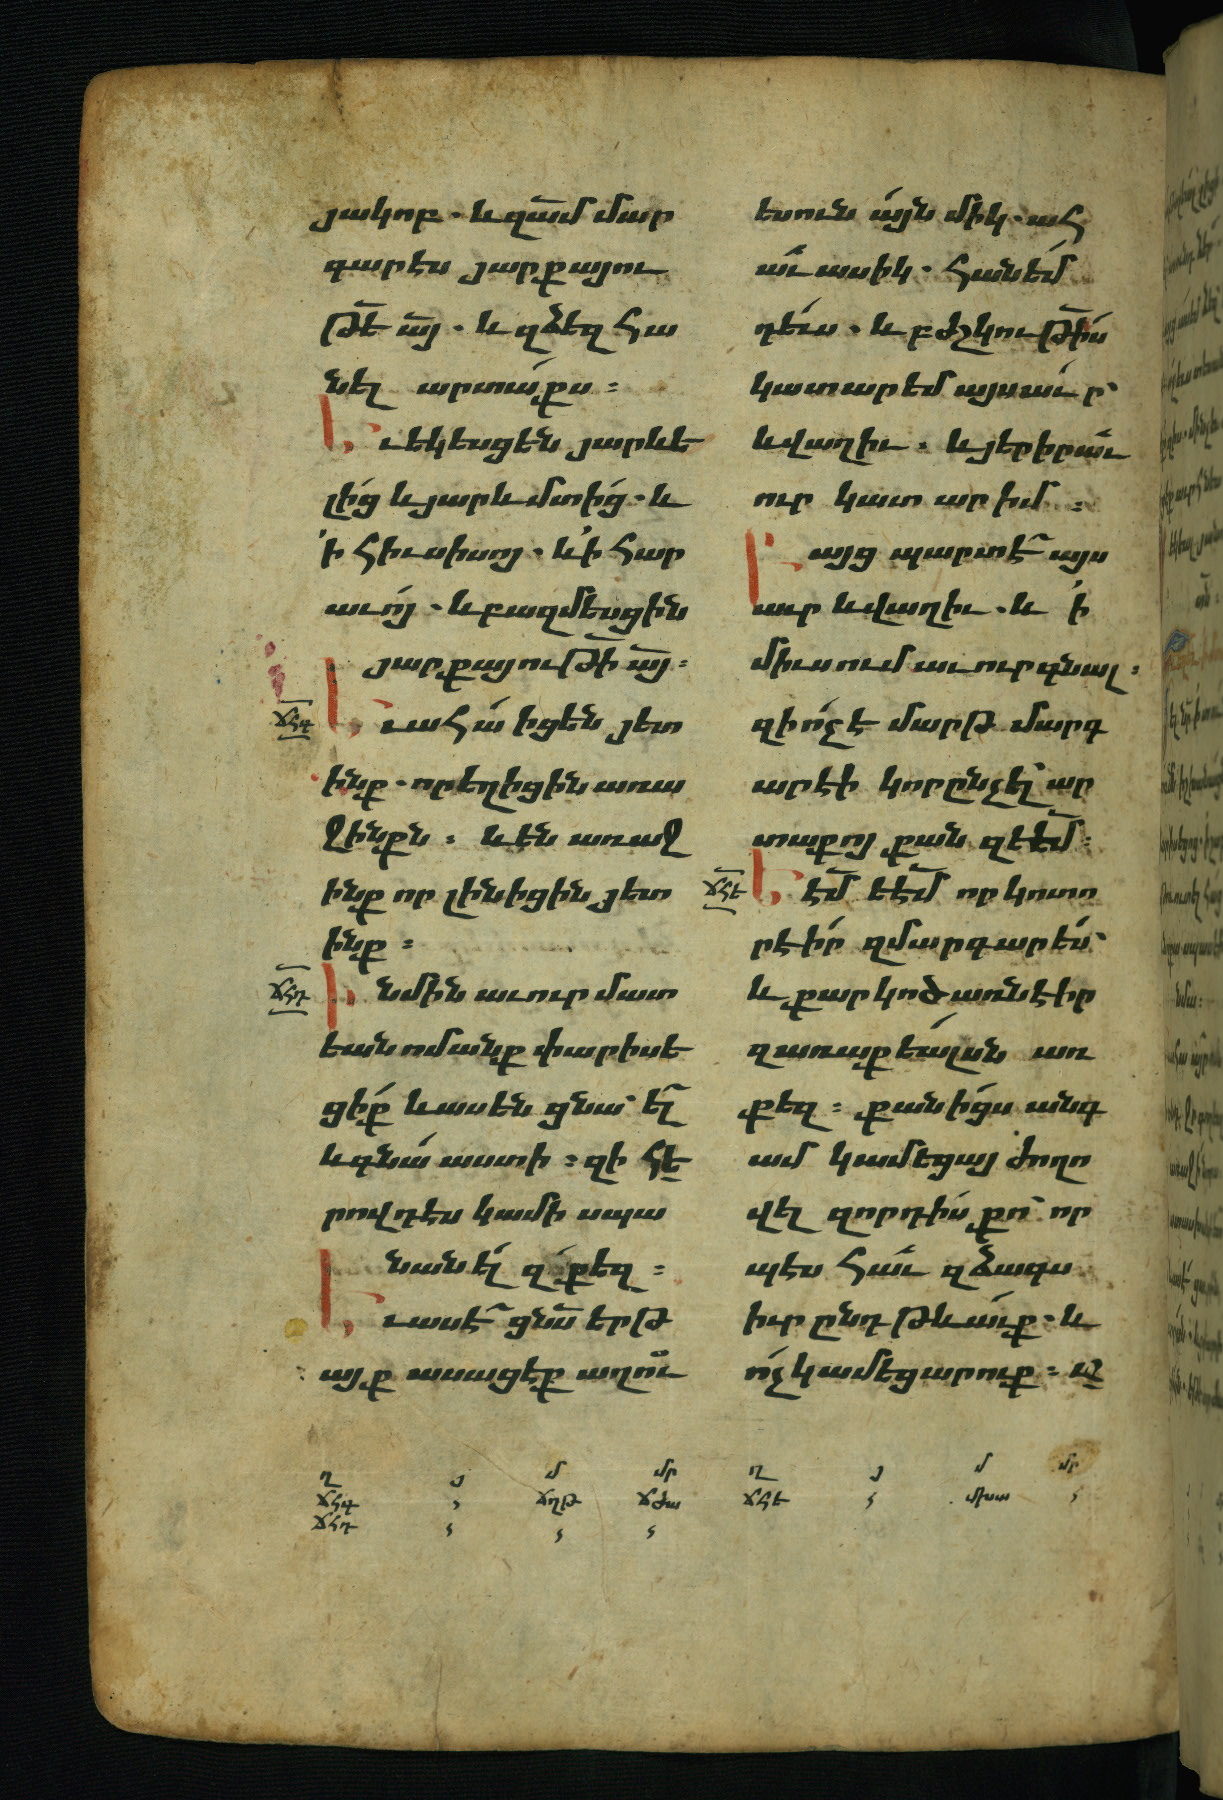 յակոբ · և զամ մար
գարէս յարքայու
թե այ · և զձեզ հա
նել արտաքս :
Եւ եկեսցեն յարևե
լից և յարևմտից · և
՚ի հիւսիսոյ · և ՚ի հար
աւոյ · և բազմեսցին
յարքայութի այ :
ՃՀԳ Եւ ահա իցեն յետ
ինք · որ եղիցին առա
ջինքն : և են առաջ
ինք որ լինիցին յետ
ինք :
ՃՀԴ Ի նմին աւուր մատ
եան ոմանք փարիսե
ցիք և ասեն ցնա՝ ել
և գնա աստի : զի հե
րովդէս կամի սպա
նանել զքեզ :
Եւ ասէ ցնս երթ
այք ասացէք աղու
եսուն այն միկ · ահ
աւասիկ · հանեմ
դեւս · և բժշկութիս
կատարեմ այսաւր՝
և վաղիւ · և յերիրաւ
ուր կատարիմ :
Բայց պարտէ այս
աւր և վաղիւ · և ՚ի
միւսում աւուր գնալ :
զի ոչ է մարթ մարգ
արէի կորընչել ար
տաքոյ քան զեեմ :
ՃՀԵ Եէմ եէմ որ կոտո
րէիր զմարգարէս՝
և քարկոծ առնէիր
զառաքեալսն առ
քեզ : քանիցս անգ
ամ կամեցայ ժողո
վել զորդիս քո՝ որ
պէս հաւ զձագս
իւր ընդ թևաւք · և
ոչ կամեցարուք : Ա
ղ յ մ մր
ՃՀԳ ՃՂԹ ՃՁԱ
ՃՀԴ
ղ յ մ մր
ՃՀԵ ՄԽԱ